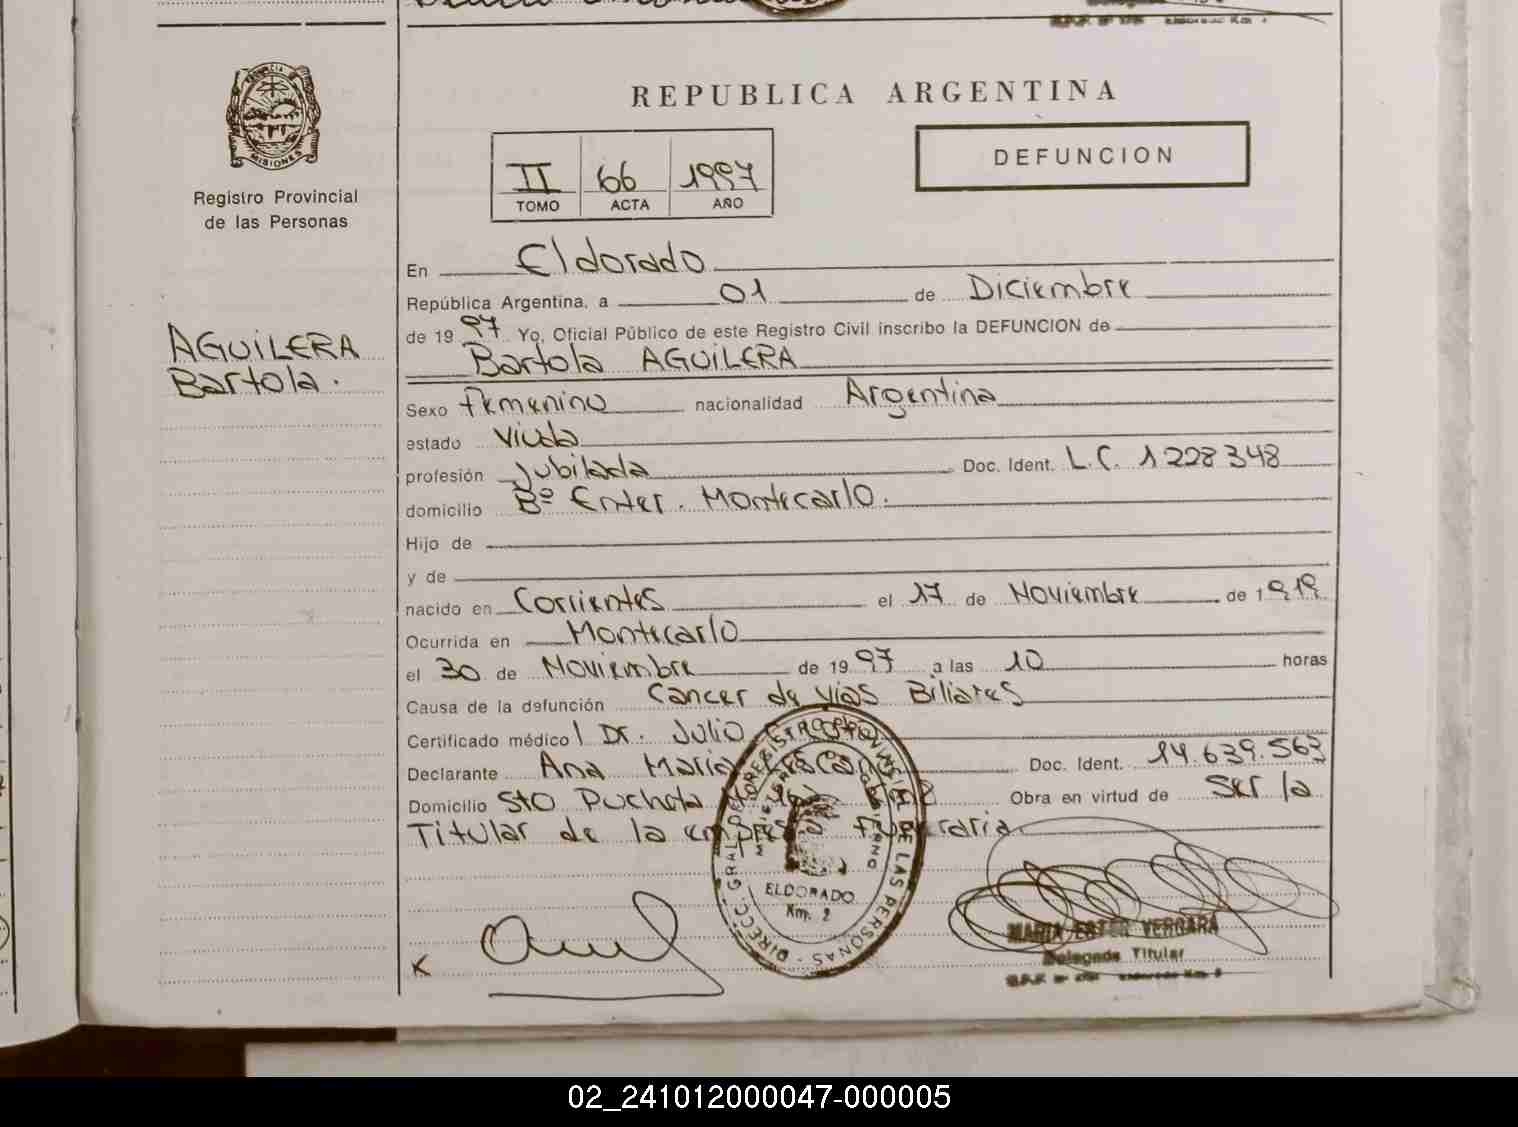 REPUBLICA ARGENTINA
PROVINCIA DE
MISIONES
Registro Provincial
de las Personas
II 66 1997
TOMO ACTA AÑO
DEFUNCION
AGUILERA
Bartola.
En Eldorado
República Argentina, a 01 de Diciembre
de 19 97 Yo, Oficial Público de este Registro Civil inscribo la DEFUNCION de
Bartola AGUILERA
Sexo Femenino nacionalidad Argentina
estado Viuda
profesión Jubilada Doc. Ident. L.C. 1228348
domicilio Bº Enter. Montecarlo.
Hijo de
y de
nacido en Corrientes el 17 de Noviembre de 1919
Ocurrida en Montecarlo
el 30 de Noviembre de 19 97 a las 10 horas
Causa de la defunción Cancer de vias Biliares
Certificado médico Dr. Julio
Declarante Ana Maria Doc. Ident. 14.639.563
Domicilio Sto Ser la
Obra en virtud de
Titular de la empresa Funeraria.
DIRECC. GRAL. DE REGISTRO PROVINCIAL DE LAS PERSONAS
ELDORADO
Km. 2
MARIA ESTER VERGARA
Delegada Titular
02_241012000047-000005